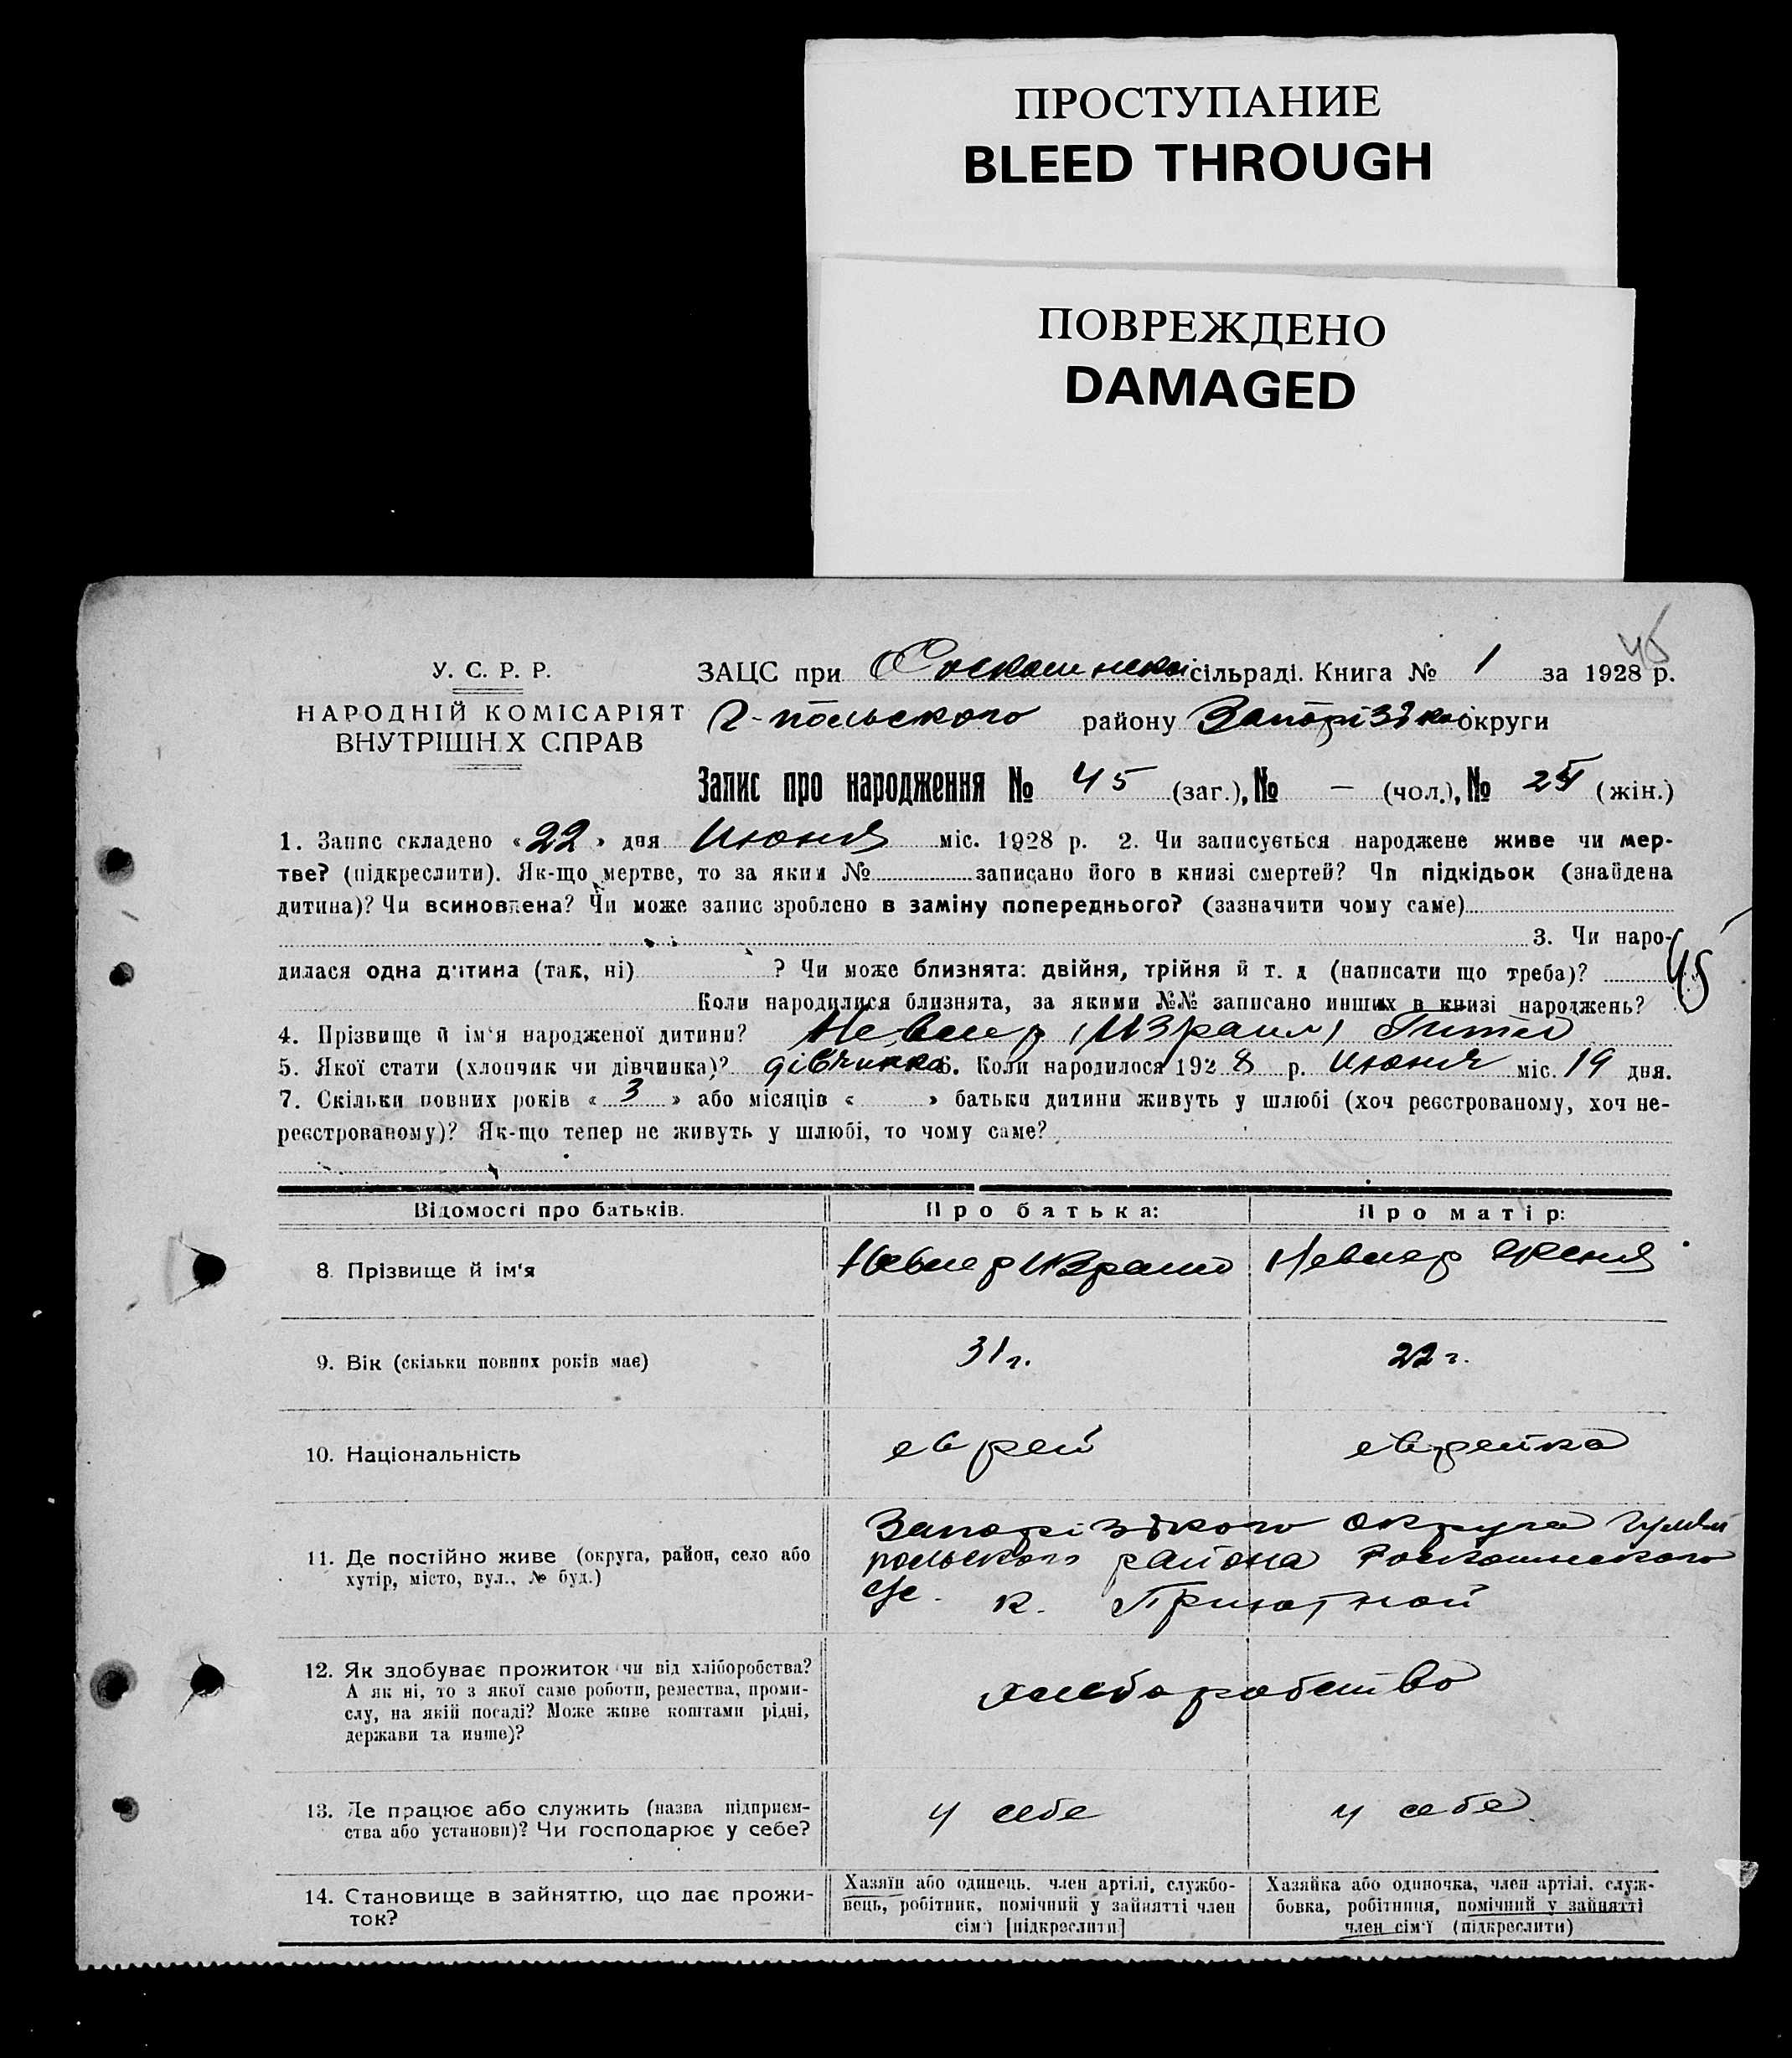 ПРОСТУПАНИЕ
BLEED THROUGH
ПОВРЕЖДЕНО
DAMAGED
45
У. С. Р. Р.
НАРОДНІЙ КОМІСАРІЯТ
ВНУТРІШН.Х СПРАВ
ЗАЦС при сільраді. Книга № 1 за 1928 р.
Г-польского району Запорізько округи
Запис про народження № 45 (заг.), № — (чол.), № (жін.)
1. Запис складено «22» дня Июня міс. 1928 р. 2. Чи записується народжене живе чи мер-
тве? (підкреслити). Як-що мертве, то за яким № записано його в книзі смертей? Чи підкідьок (знайдена
дитина)? Чи всиновлена? Чи може запис зроблено в заміну попереднього? (зазначити чому саме)
3. Чи наро-
дилася одна дитина (так, ні) ? Чи може близнята: двійня, трійня й т. д (написати що треба)?
45
Коли народилися близнята, за якими №№ записано инших в книзі народжень?
4. Прізвище й ім'я народженої дитини? (Израил)
5. Якої стати (хлопчик чи дівчинка)? дівчинка 6. Коли народилося 1928 р. Июня міс. 19 дня.
7. Скільки повних років « 3 » або місяців « » батьки дитини живуть у шлюбі (хоч реєстрованому, хоч не-
реєстрованому)? Як-що тепер не живуть у шлюбі, то чому саме?
Відомості про батьків.
Про батька:
Про матір:
8. Прізвище й ім'я
9. Вік (скільки повних років має)
31 г.
22 г.
10. Національність
еврей
еврейка
11. Де постійно живе (округа, район, село або
хутір, місто, вул., № буд.)
Запорізького округа Гуляй
польского района Роскошнеского
с/с. к. Приютной
12. Як здобуває прожиток чи від хліборобства?
А як ні, то з якої саме роботи, ремества, проми-
слу, на якій посаді? Може живе коштами рідні,
держави та инше)?
хлеборобство
13. Де працює або служить (назва підприєм-
ства або установи)? Чи господарює у себе?
у себе
у себе
14. Становище в зайняттю, що дає прожи-
ток?
Хазяїн або одинець, член артілі, службо-
вець, робітник, помічний у зайнятті член
сім'ї [підкреслити]
Хазяйка або одиночка, член артілі, служ-
бовка, робітниця, помічний у зайнятті
член сім'ї (підкреслити)